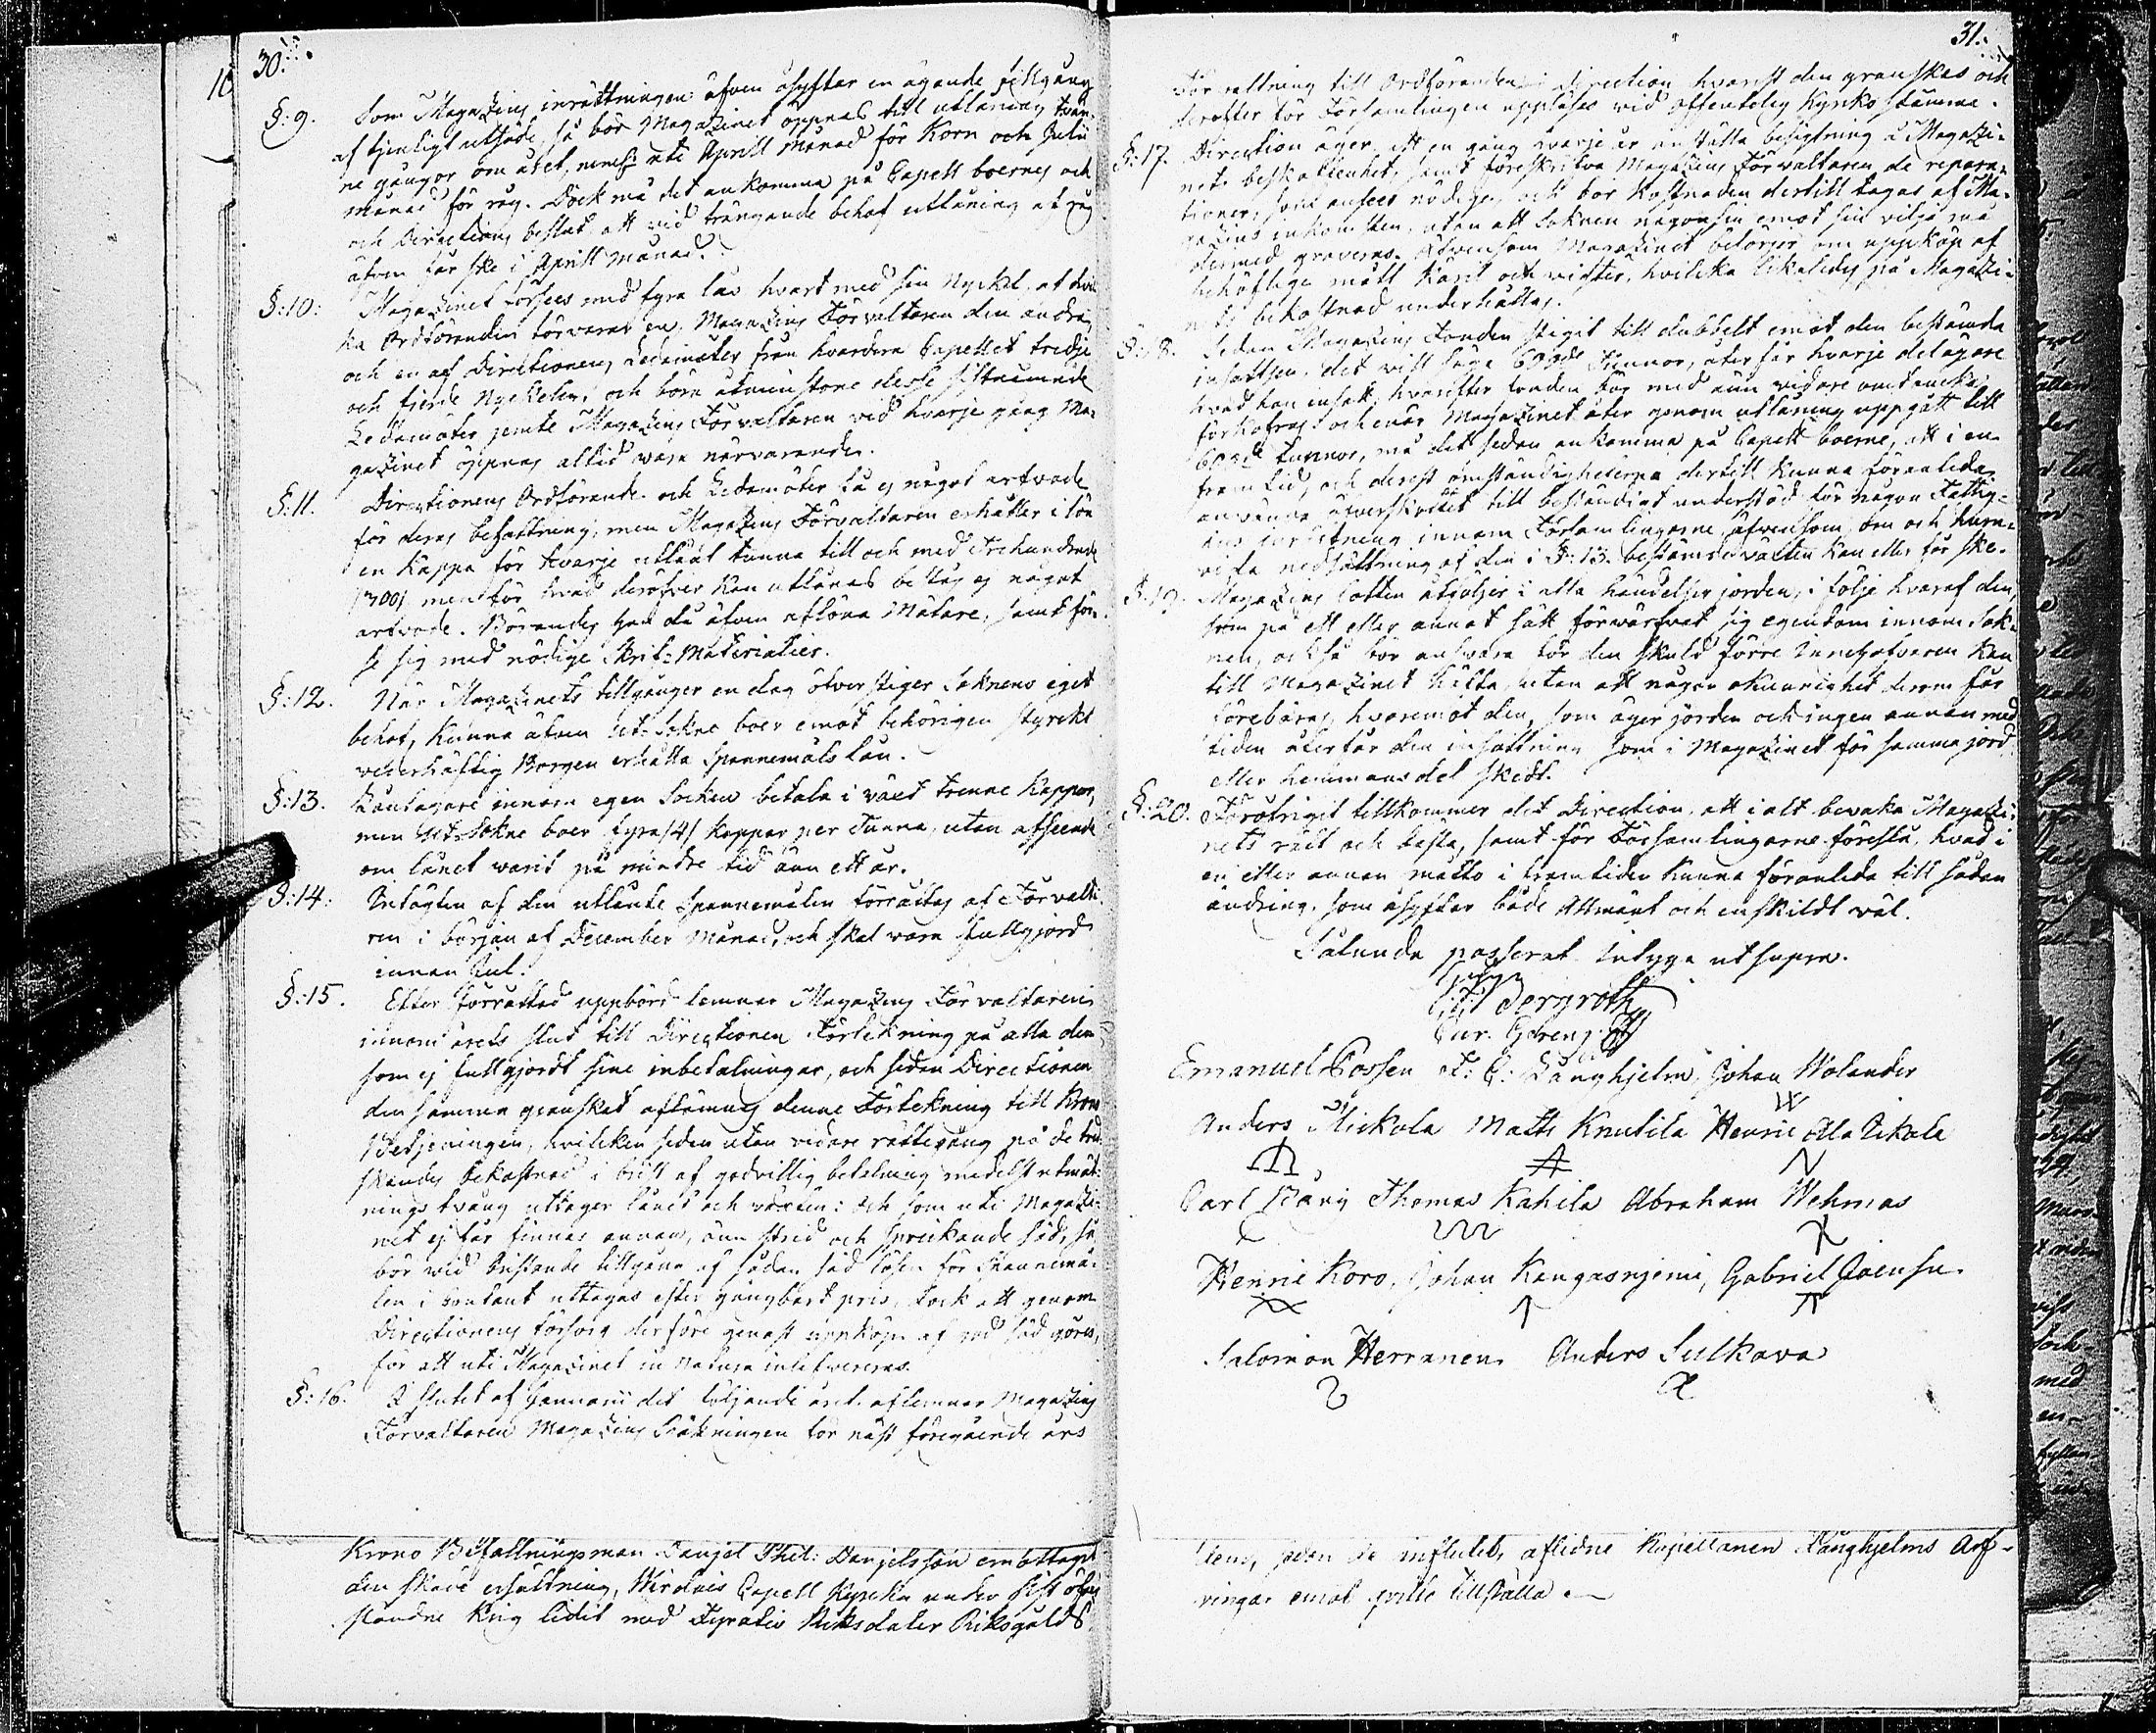 30.
§: 9. Som Magazins inrättningen äfven åsyftar en ägande tillgång
af tjenligt utsäde, så bör Magazinet öppnas till utlåning tven-
ne gångor om året, neml: uti April månad för Korn och Julii
månad för råg. Dock må det ankomma på Capell boernes och
och Directions beslut, att vid trängande behof utlåning af råg
äfven får ske i April månad.
§: 10: Magazinet förses med fyra lås hvart med sin Nyckel, af hvil-
ka Ordföranden förvarar en, Magazins Förvaltaren den andra,
och en af Directionens Ledamöter från hvardera Capellet tredje
och fjerde Nyckelen, och böra åtminstone desse sistnämnde
Ledamöter jemte Magazins Förvaltaren vid hvarje gång Ma-
gazinet öppnas altid vara närvarande.
§: 11. Directionens Ordförande och Ledamöter få ej något arfvode
för deras befattning, men Magazins Förvaltaren erhåller i lön
en Kappa för hvarje utlånt tunna till och med Trehundrade
/300/ men för hvad deröfver kan utlånas bestås ej något
arfvode. Börandes han då äfven aflöna Mätare, samt för-
se sig med nödige Skrif-Materialier.
§: 12. När Magazinets tillgånger en dag öfverstiger Soknens eget
behof, kunna äfven Ut-Sokne boer emot behörigen styrkt
vederhäftig Borgen erhålla Spannemåls lån.
§: 13. Låntagare innom egen Socken betala i växt trenne Kappar,
men Ut-Sokne boer fyra /4/ Kappar per Tunna, utan afseende
om lånet varit på mindre tid änn ett år.
§: 14: Intägten af den utlånte Spannemålen förrättas af Förvalta-
ren i början af December Månad, och skal vara fullgjord
innan Jul.
§: 15. Efter förrättad uppbörd lemnar Magazins Förvaltaren
innom årets slut till Directionen Förtekning på alla dem
som ej fullgjordt sine inbetalningar, och sedan Directionen
den samma granskat aflemnas denne Förtekning till Krono
Betjeningen, hvilken sedan utan vidare rättegång på de tred-
skandes bekostnad i brist af godvillig betalning medelst utmät-
nings tvång uttager lånet och växten: Och som uti Magazi-
net ej får finnas annan, änn strid och sprickande säd, så
bör vid bristande tillgång af sådan säd lösen för Spannemå-
len i Contant uttagas efter gångbart pris, dock att genom
Directionens försorg derföre genast uppköp af god säd göres,
för att uti Magazinet in natura inlefvereras.
§: 16. I slutet af Januarii det följande året aflemnar Magazins
Förvaltaren Magazins Räkningen för näst föregående års
Krono Befallningsman Danjel Phil: Danjelsson emottagit
den skade ersättning, Wirdois Capell Kyrka under sist öfver
ståndne Krig lidit med Fyratio Riksdaler Riksgälds
31.
Förvaltning till Ordföranden i Direction hvarest den granskas och
derefter för Församlingen uppläses vid offentelig Kyrko stämma.
§: 17. Direction äger, att en gång hvarje år anställa besigtning å Magazi-
nets beskaffenhet, samt föreskrifva Magazins Förvaltaren de repara-
tioner, som anses nödige, och bör Kostnaden dertill tagas af Ma-
gazins inkomsten, utan att Soknen någonsin emot sin vilja må
dermed graveras. Äfvensom Magazinet besörjer om uppköp af
behöflige mått Kärl och vigter, hvilka likaledes på Magazi-
nets bekostnad underhållas.
§: 18. Sedan Magazins Fonden stigit till dubbelt emot den bestämda
insattsen, det vill säga 60 Tunnor, återfår hvarje delägare
hvad han insatt, hvarefter fonden bör med änn vidare omtanka
förkofras och enär Magazinet åter genom utlåning uppgått till
60 tunnor, må det sedan ankomma på Capell boerne, att i en
framtid, och derest omständigheterna dertill kunna föranleda,
använda öfverskottet till beständigt understöd för någon Fattig-
hus inrättning innom Församlingarne, äfvensom, om och huru-
vida nedsättning af den i §: 13. bestämde växten kan eller får ske.
§: 19. Magazins lotten åtföljer i alla händelser jorden, i följe hvaraf den,
som på ett eller annat sätt förvärfvat sig egendom innom Sok-
nen, också bör ansvara för den skuld förre Innehafvaren kan
till Magazinet häfta, utan att någon okunnighet derom får
förebäras, hvaremot den, som äger jorden och ingen annan med
tiden återfår den insättning som i Magazinet för samma jord
eller hemmansdel skedt.
§: 20. Föröfrigit tillkommer det Direction, att i alt bevaka Magazi-
nets rätt och bästa, samt för Församlingarne föreslå, hvad i
en eller annan måtto i framtiden kunna föranleda till sådan
ändring, som åsyftar både Allmänt och enskildt väl.
Sålunda passerat intyga ut supra.
Bergroth
Emanuel Possen F: C: Långhjelm, Johan Wolander
Anders Mickola Matts Knutila Henric Ala Ikola
Carl Bång Thomas Kahila Abraham Wehmas
Henric Koro, Johan Kangasnjemi, Gabriel Joensu.
Salomon Herranen Anders Sulkava
sedan de influtit, aflidne Kapellanen Långhjelms Arf-
vingar emot qvitto tillställa.